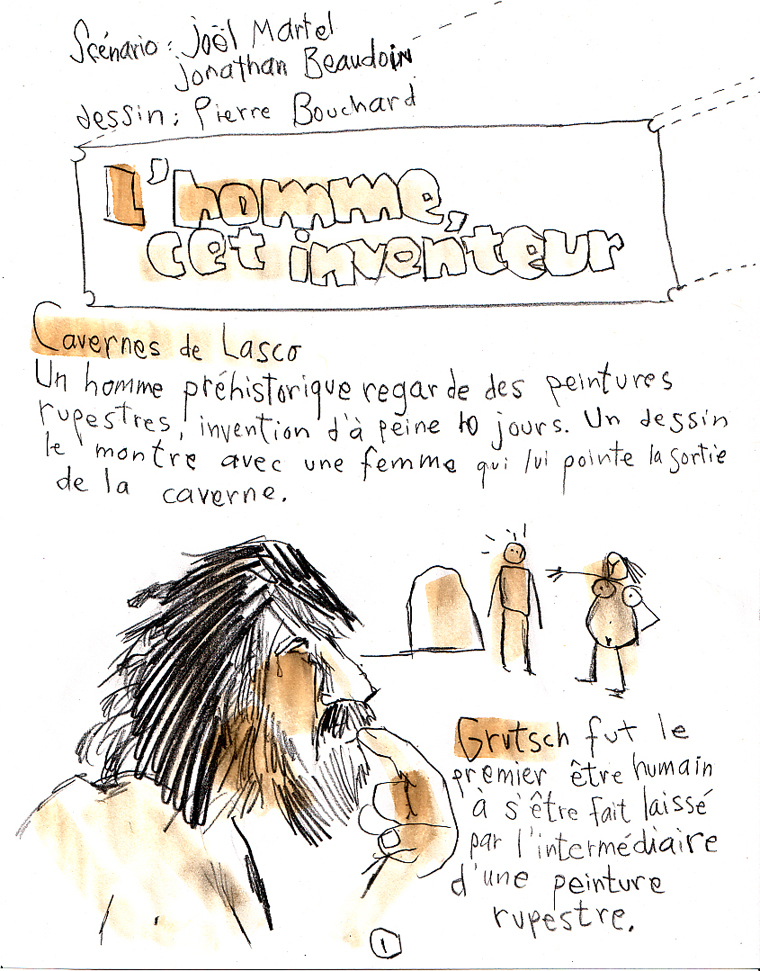 Scénario : Joël Martel
Jonathan Beaudoin
dessin : Pierre Bouchard
L'homme,
cet inventeur
Cavernes de Lasco
Un homme préhistorique regarde des peintures
rupestres, invention d'à peine 10 jours. Un dessin
le montre avec une femme qui lui pointe la sortie
de la caverne.
Grutsch fut le
premier être humain
à s'être fait laissé
par l'intermédiaire
d'une peinture
rupestre.
1